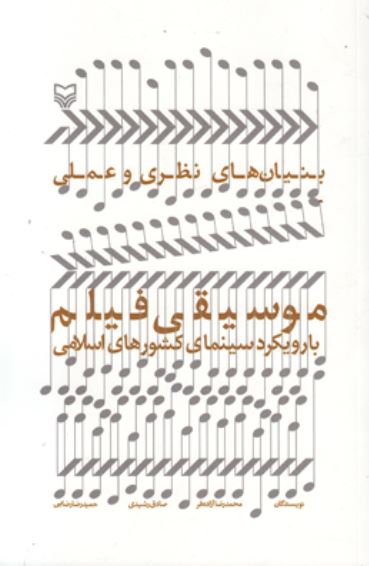 بنیان‌های نظری و عملی
موسیقی فیلم
با رویکرد سینمای کشورهای اسلامی
نویسندگان محمدرضا آزاده‌فر صادق رشیدی حمیدرضا رضایی